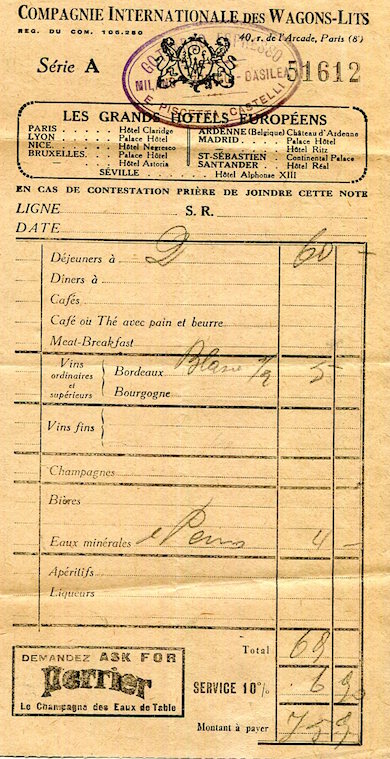 COMPAGNIE INTERNATIONALE DES WAGONS-LITS
REG. DU COM. 106.280
40, r. de l'Arcade, Paris (8e)
Série A
MILANO BASILEA
51612
LES GRANDS HOTELS EUROPÉENS
PARIS . . . . . Hôtel Claridge
LYON . . . . . Palace Hôtel
NICE. . . . . . Hôtel Negresco
BRUXELLES. . . Palace Hôtel
Hôtel Astoria
ARDENNE (Belgique) Château d'Ardenne
MADRID. . . . . Palace Hôtel
Hôtel Ritz
ST-SÉBASTIEN Continental Palace
SANTANDER . . Hôtel Réal
SÉVILLE . . . . . Hôtel Alphonse XIII
EN CAS DE CONTESTATION PRIÈRE DE JOINDRE CETTE NOTE
LIGNE S. R.
DATE
Déjeuners à D 60 –
Dîners à
Cafés
Café où Thé avec pain et beurre
Meat-Breakfast
Vins ordinaires et supérieurs
Bordeaux Blanc 1/2 5
Bourgogne
Vins fins
Champagnes
Bières
Eaux minérales 4 –
Apéritifs
Liqueurs
Total 69
SERVICE 10% 6 90
Montant à payer 75 9
DEMANDEZ ASK FOR
Perrier
Le Champagne des Eaux de Table